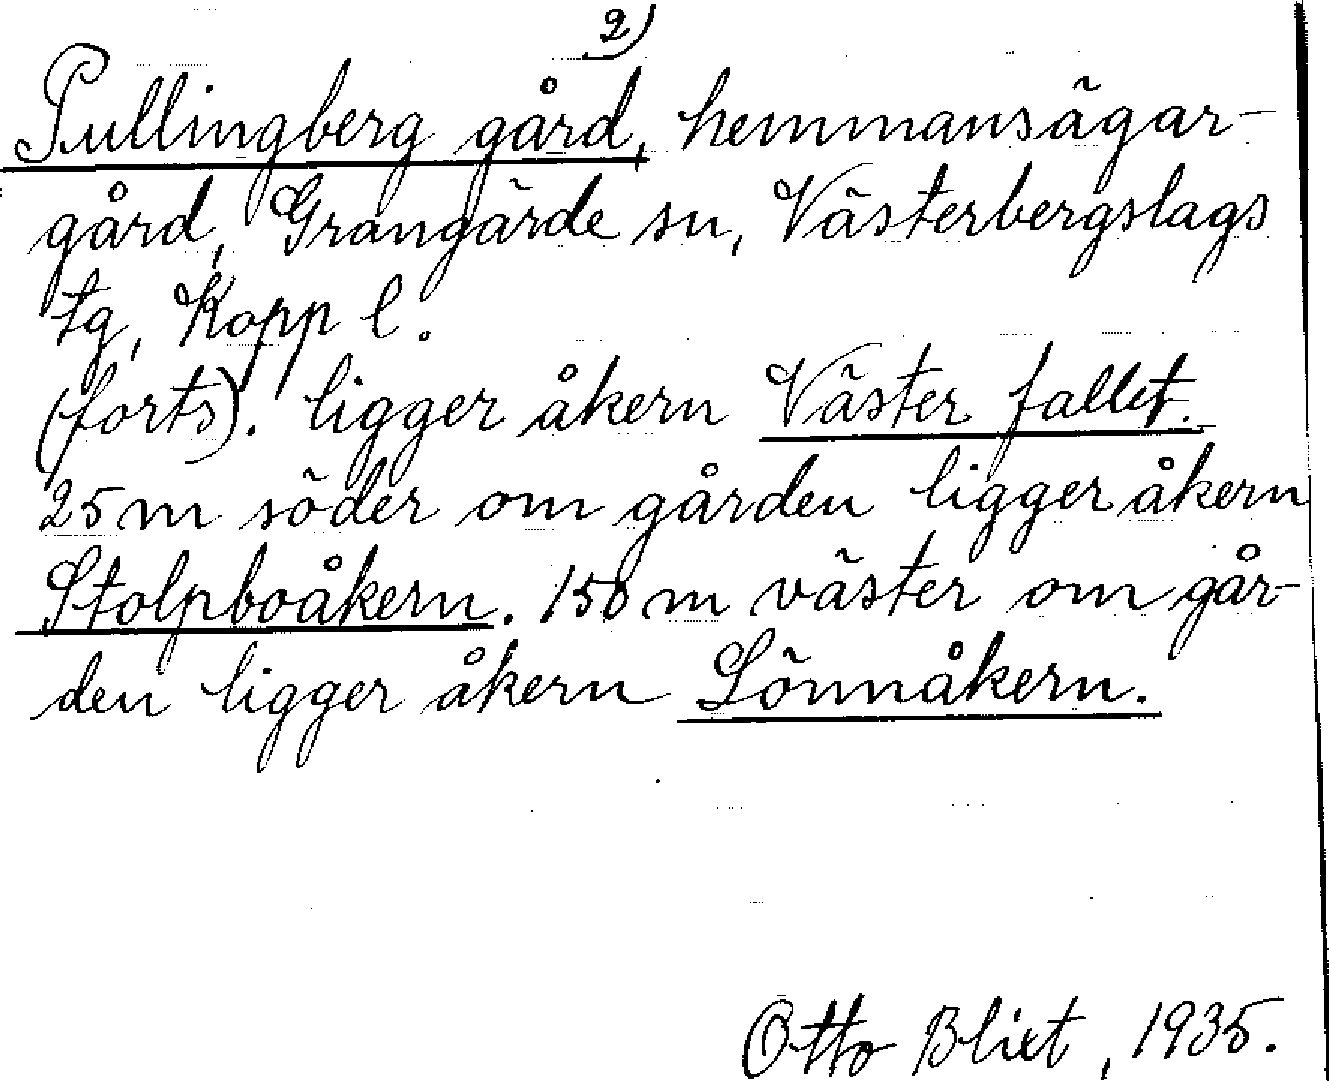 2)
Pullingberg gård, hemmansägar-
gård, Grangärde sn, Västerbergslags
tg, Kopp l.
(forts). ligger åkern Väster fallet.
25 m söder om gården ligger åkern
Stolpboåkern. 150 m väster om går-
den ligger åkern Lönnåkern.
Otto Blixt, 1935.